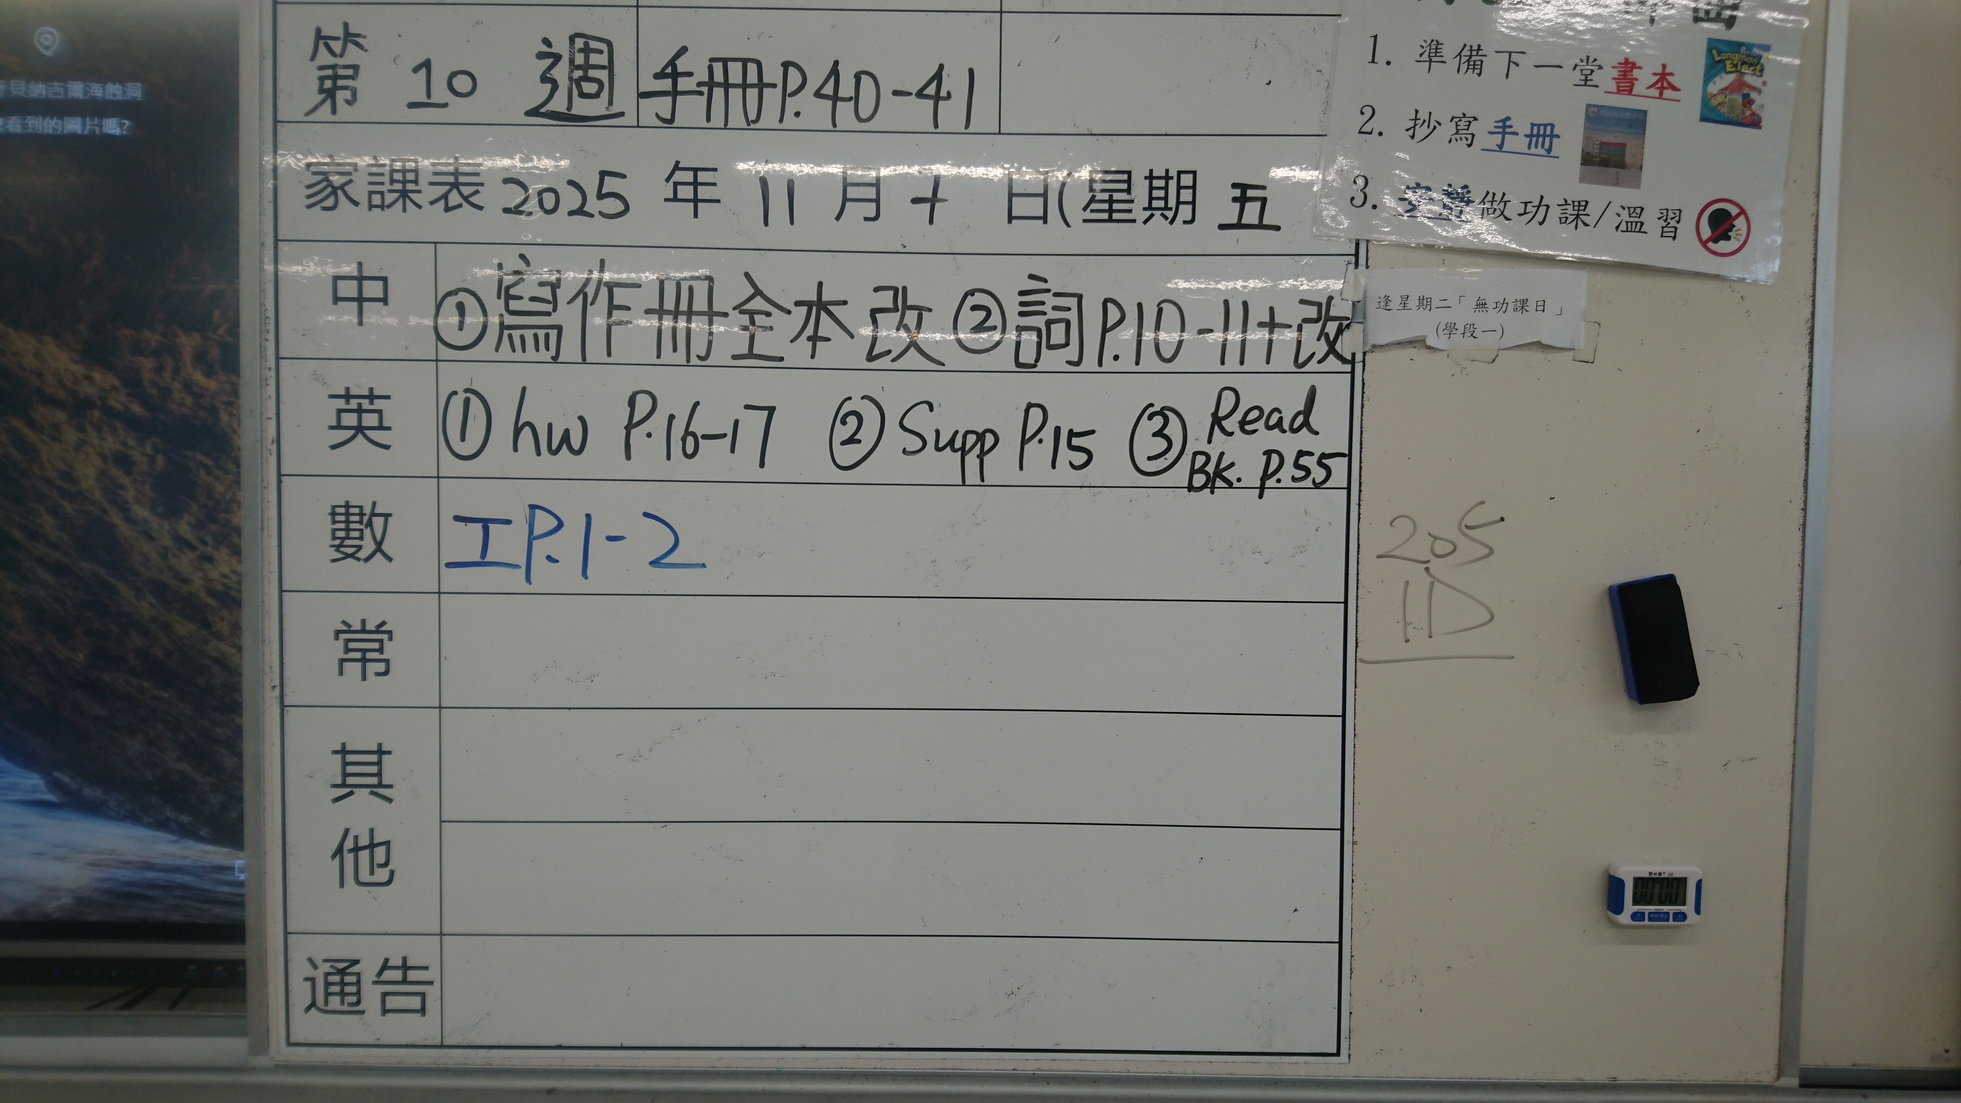 貝納吉爾海蝕洞
看到的圖片嗎?
第 10 週 手冊P.40-41
家課表 2025 年 11 月 7 日(星期 五
中 ①寫作冊全本改 ②詞P.10-11+改
英 ① hw P.16-17 ② Supp P.15 ③ Read BK. P.55
數 工P.1-2
常
其他
通告
1. 準備下一堂書本
Longman Elect
2. 抄寫手冊
3. 安靜做功課/溫習
逢星期二「無功課日」
(學段一)
205
1D
00:00